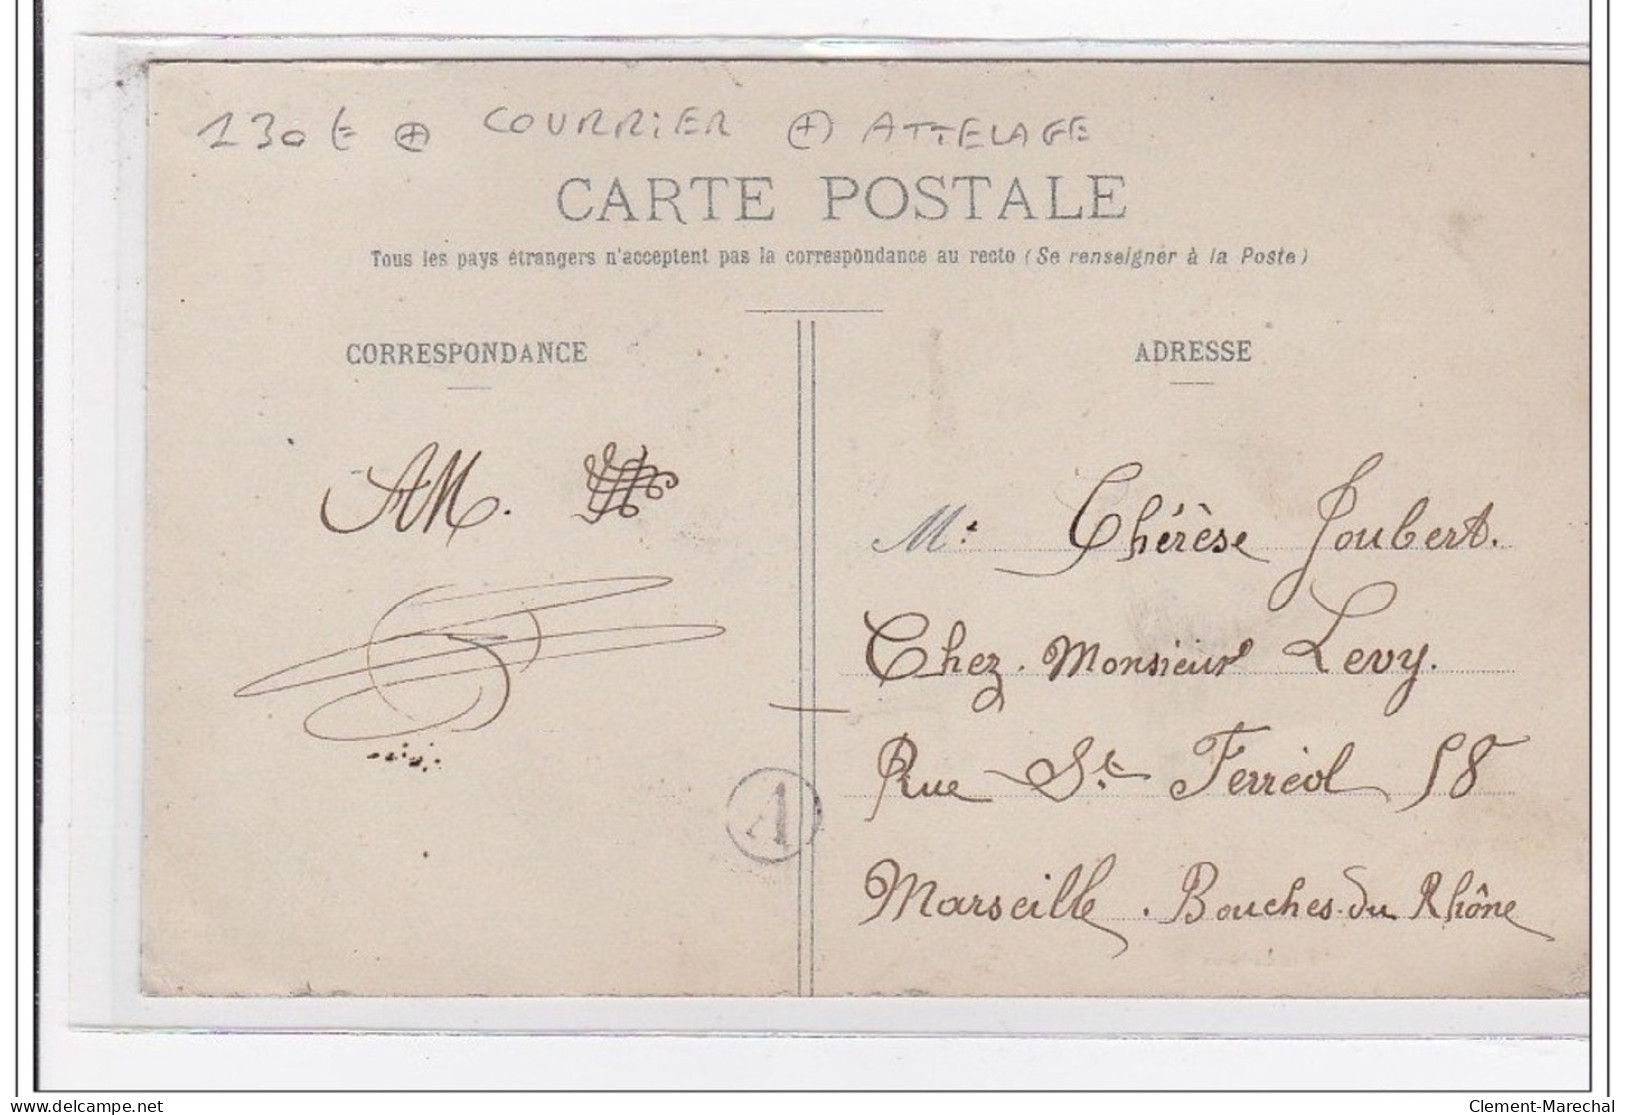 130 € + COURRIER + ATTELAGE
CARTE POSTALE
Tous les pays étrangers n'acceptent pas la correspondance au recto (Se renseigner à la Poste)
CORRESPONDANCE
AM.
A
ADRESSE
M: Thérèse Joubert.
Chez Monsieur Levy.
Rue St Ferréol 58
Marseille. Bouches du Rhône
delcampe.net
Clement-Marechal